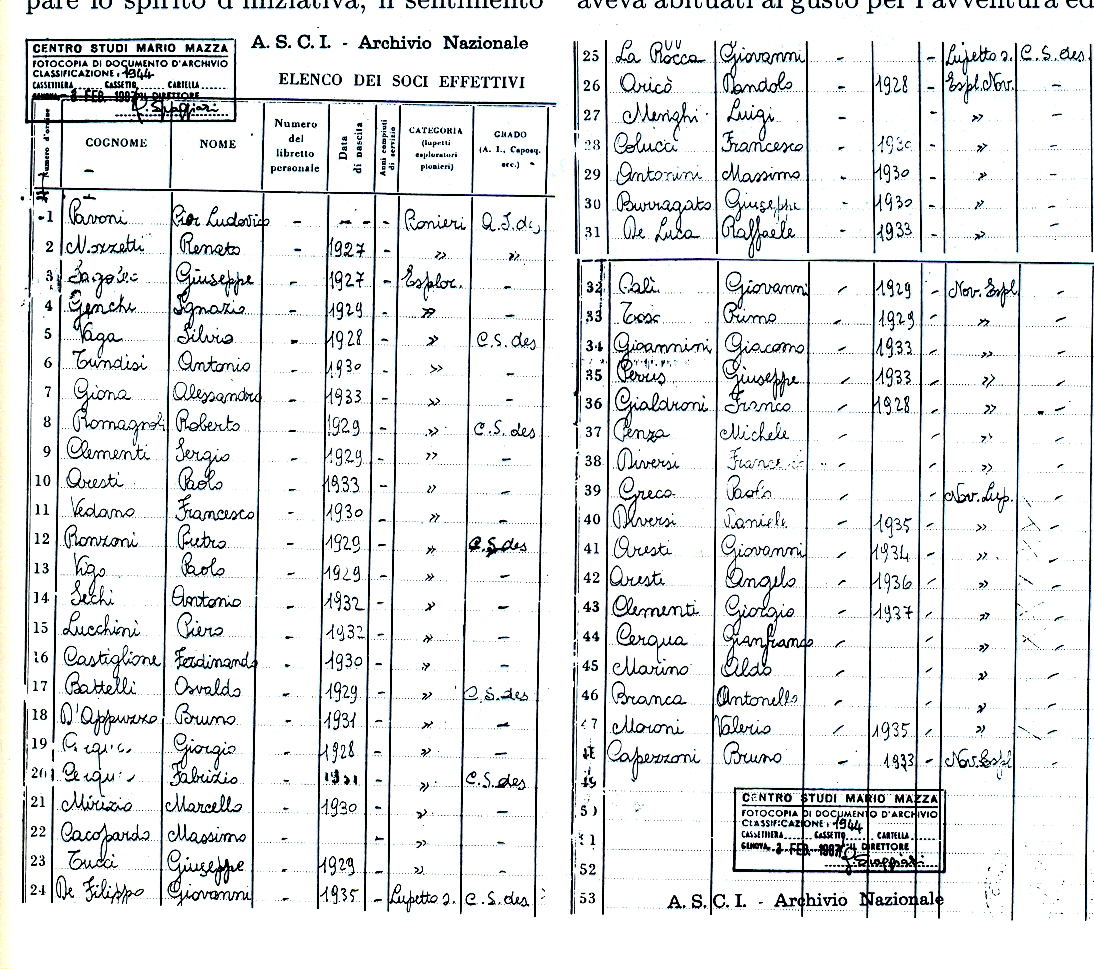 pare lo spirito d'iniziativa, il sentimento
CENTRO STUDI MARIO MAZZA
FOTOCOPIA DI DOCUMENTO D'ARCHIVIO
CLASSIFICAZIONE: 1944
CASSETTIERA CASSETTO, CARTELLA
GENOVA, 3 FEB. 1987 IL DIRETTORE
A.S.C.I. - Archivio Nazionale
ELENCO DEI SOCI EFFETTIVI
Numero d'ordine COGNOME NOME Numero del libretto personale Data di nascita Anni compiuti di servizio CATEGORIA (lupetti esploratori pionieri) GRADO (A. I., Caposq. ecc.)
1 Pavoni Pier Ludovico - - - - Pionieri
2 Nozzetti Renato - 1927 - » »
3 Giuseppe - 1927 - Esplor. -
4 Genchi Ignazio - 1929 - » -
5 Vaga Silvio - 1928 - » C.S. des
6 Tundisi Antonio - 1930 - » -
7 Giona Alessandro - 1933 - » -
8 Romagnoli Roberto - 1929 - » C.S. des
9 Clementi Sergio - 1929 - » -
10 Aresti Paolo - 1933 - » -
11 Vedano Francesco - 1930 - » -
12 Ronzoni Pietro - 1929 - » C.S. des
13 Vigo Paolo - 1929 - » -
14 Sechi Antonio - 1932 - » -
15 Lucchini Piero - 1932 - » -
16 Castiglione Ferdinando - 1930 - » -
17 Battelli Osvaldo - 1929 - » C.S. des
18 D'Appuzzo Bruno - 1931 - » -
19 Giorgio - 1928 - » -
20 Fabrizio - - » C.S. des
21 Mirizio Marcello - 1930 - » -
22 Cacopardo Massimo - » -
23 Tucci Giuseppe - 1929 - » -
24 De Filippo Giovanni - 1935 - Lupetto s. C.S. des
aveva abituati al gusto per l'avventura ed
25 La Rocca Giovanni - - Lupetto s. C.S. des.
26 Aricò Pandolo - 1928 - Espl. Nov. -
27 Menghi Luigi - - » -
28 Colucci Francesco - 1930 - » -
29 Antonini Massimo - 1930 - » -
30 Burragato Giuseppe - 1930 - » -
31 De Luca Raffaele - 1933 - » -
32 Calì Giovanni - 1929 - Nov. Espl -
33 Primo - 1929 - » -
34 Gioannini Giacomo - 1933 - » -
35 Giuseppe - 1933 - » -
36 Gialdroni Franco - 1928 - » -
37 Penza Michele - - » -
38 Diversi - - » -
39 Greco Paolo - - Nov. Lup.
40 Diversi Daniele - 1935 - »
41 Aresti Giovanni - 1934 - »
42 Aresti Angelo - 1936 - »
43 Clementi Giorgio - 1937 - »
44 Cerqua Gianfranco - - »
45 Marino Aldo - - » -
46 Branca Antonello - - » -
47 Moroni Valerio - 1935 - » -
48 Capezzoni Bruno - 1933 - Nov. Espl -
49
50
51
52
53
CENTRO STUDI MARIO MAZZA
FOTOCOPIA DI DOCUMENTO D'ARCHIVIO
CLASSIFICAZIONE: 1944
CASSETTIERA CASSETTO CARTELLA
GENOVA, 3 FEB. 1987 IL DIRETTORE
A.S.C.I. - Archivio Nazionale